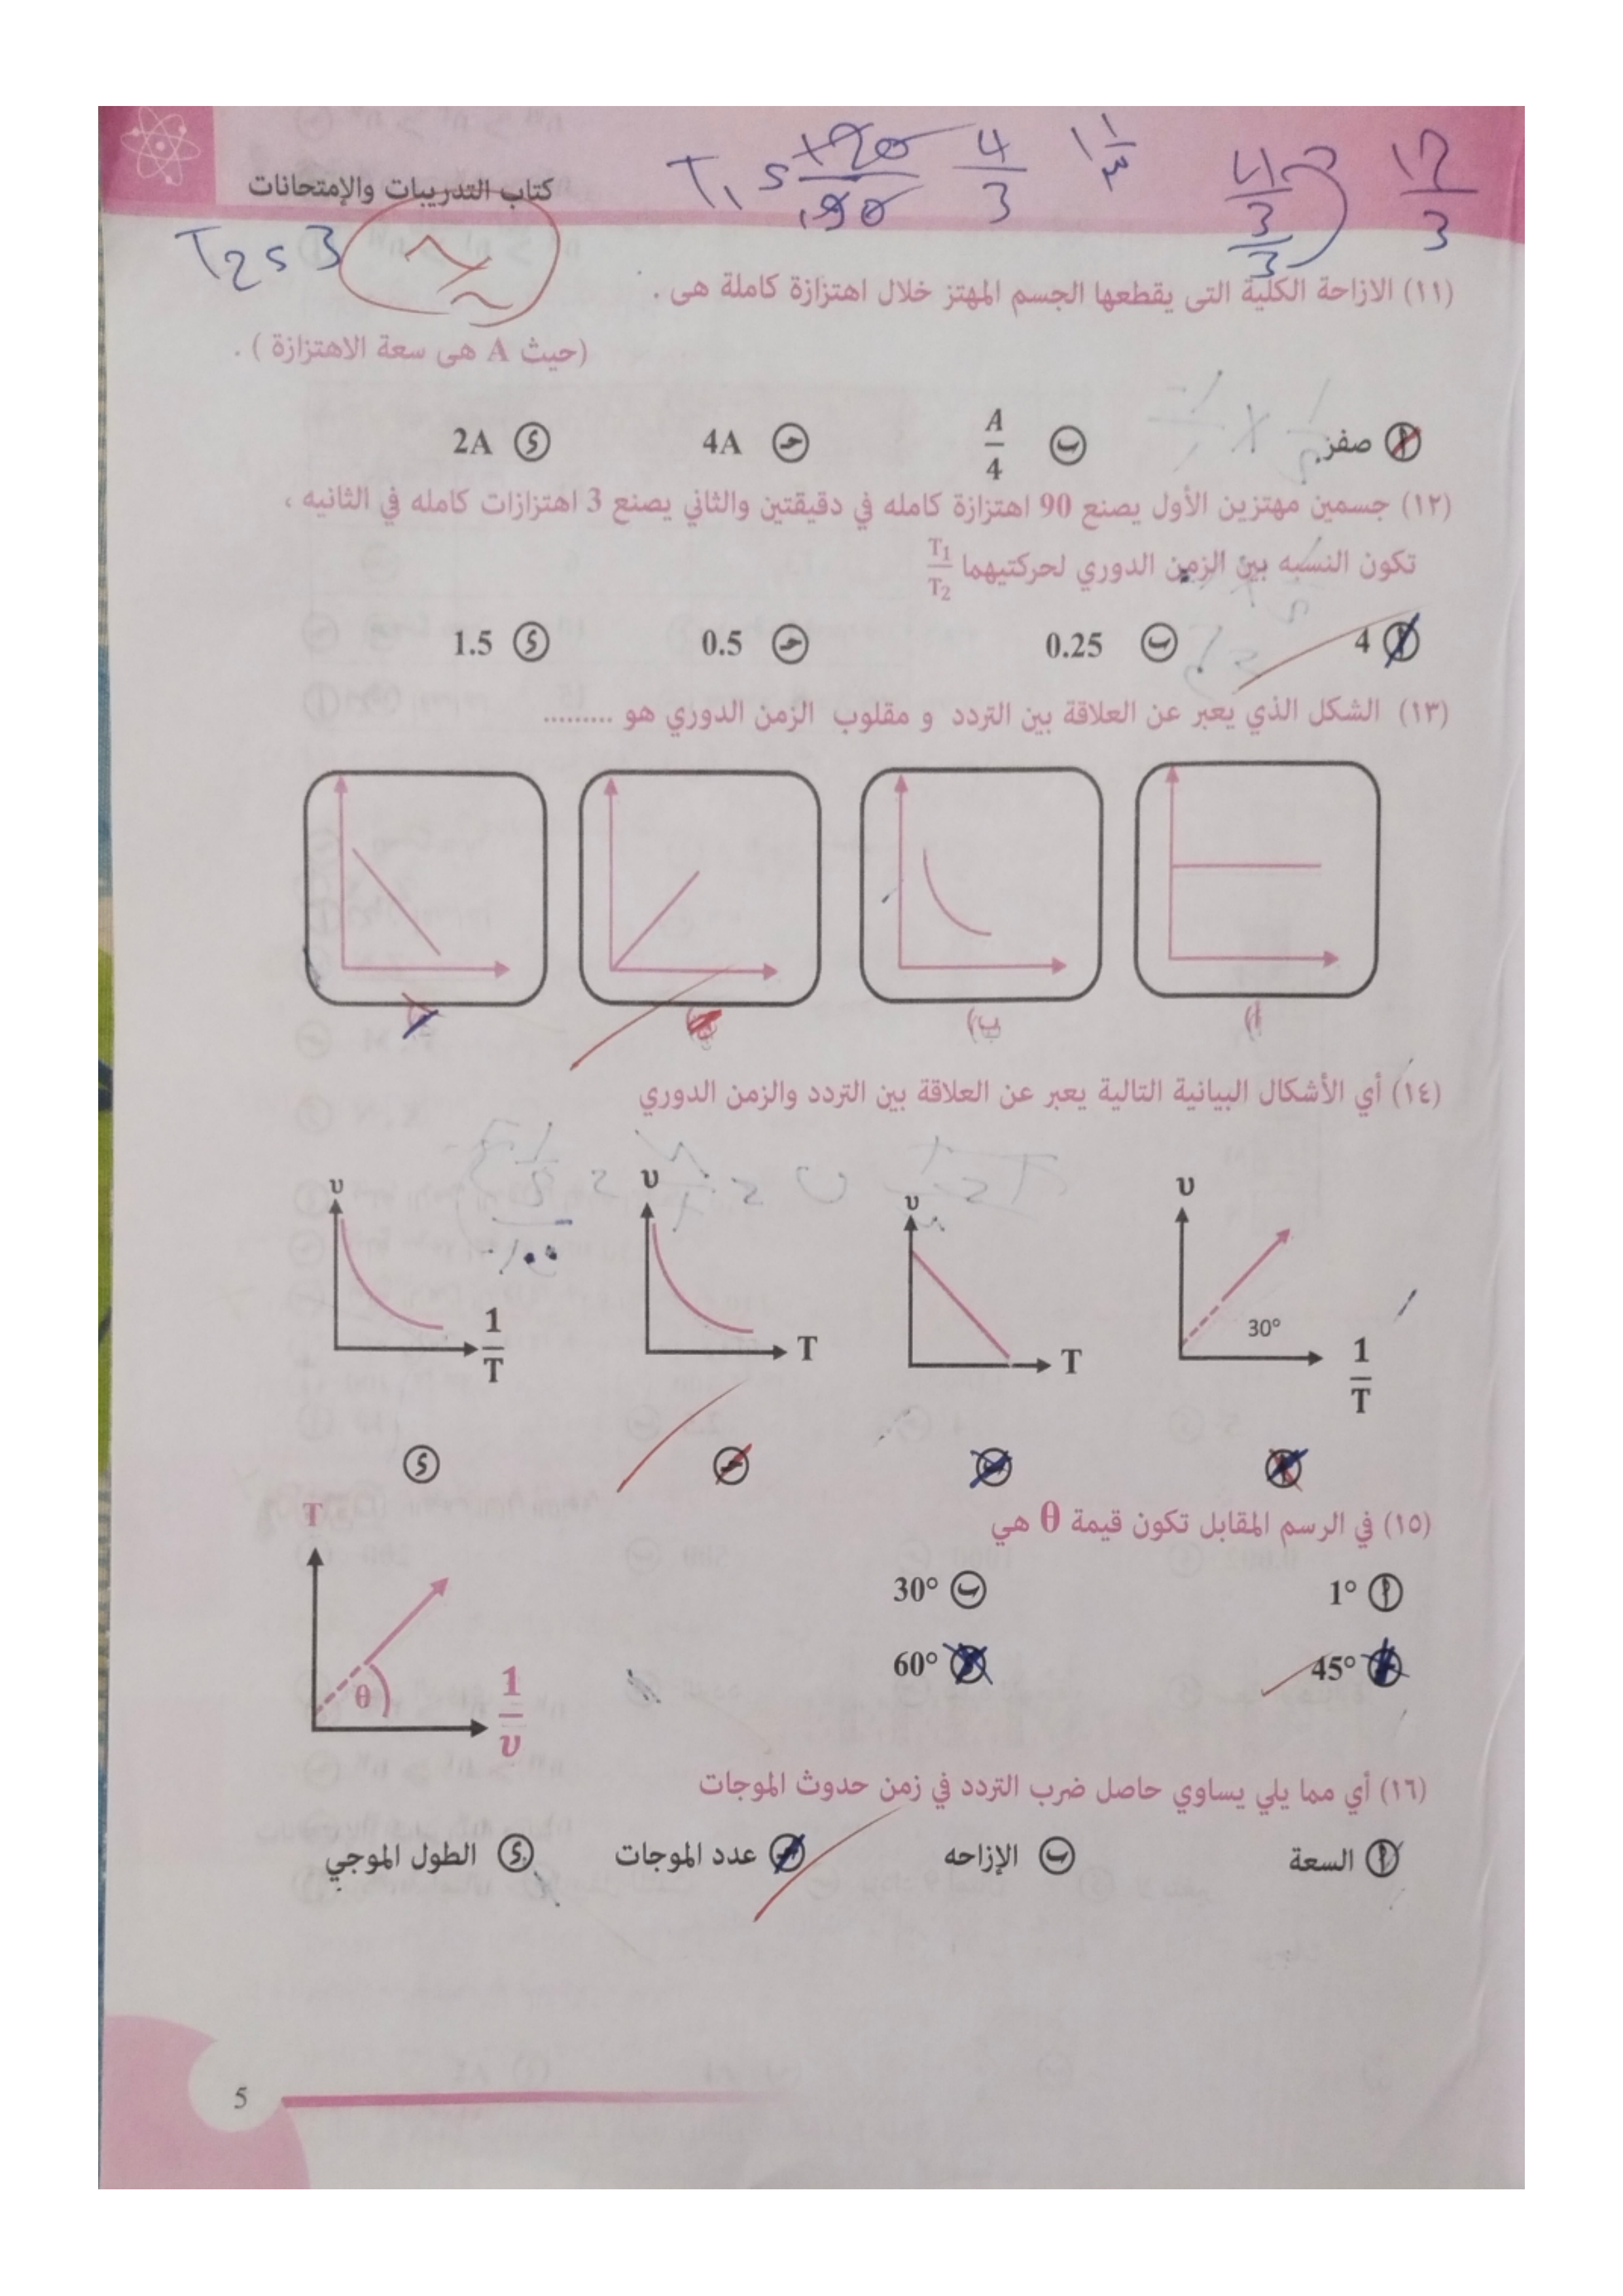 كتاب التدريبات والإمتحانات
T1 = 120/90 4/3 1 1/3 4/3/3 12/3
T2 = 3
(١١) الازاحة الكلية التى يقطعها الجسم المهتز خلال اهتزازة كاملة هى .
(حيث A هى سعة الاهتزازة ) .
أ صفر. ب A/4 جـ 4A د 2A
(١٢) جسمين مهتزين الأول يصنع 90 اهتزازة كامله في دقيقتين والثاني يصنع 3 اهتزازات كامله في الثانيه ،
تكون النسبه بين الزمن الدوري لحركتيهما T1/T2
أ 4 ب 0.25 جـ 0.5 د 1.5
(١٣) الشكل الذي يعبر عن العلاقة بين التردد و مقلوب الزمن الدوري هو .........
أ) ب)
(١٤) أي الأشكال البيانية التالية يعبر عن العلاقة بين التردد والزمن الدوري
υ υ υ υ
30°
1/T T T 1/T
أ ب جـ د
(١٥) في الرسم المقابل تكون قيمة θ هي
T
أ 1° ب 30°
جـ 45° د 60°
θ
1/υ
(١٦) أي مما يلي يساوي حاصل ضرب التردد في زمن حدوث الموجات
أ السعة ب الإزاحه جـ عدد الموجات د الطول الموجي
5